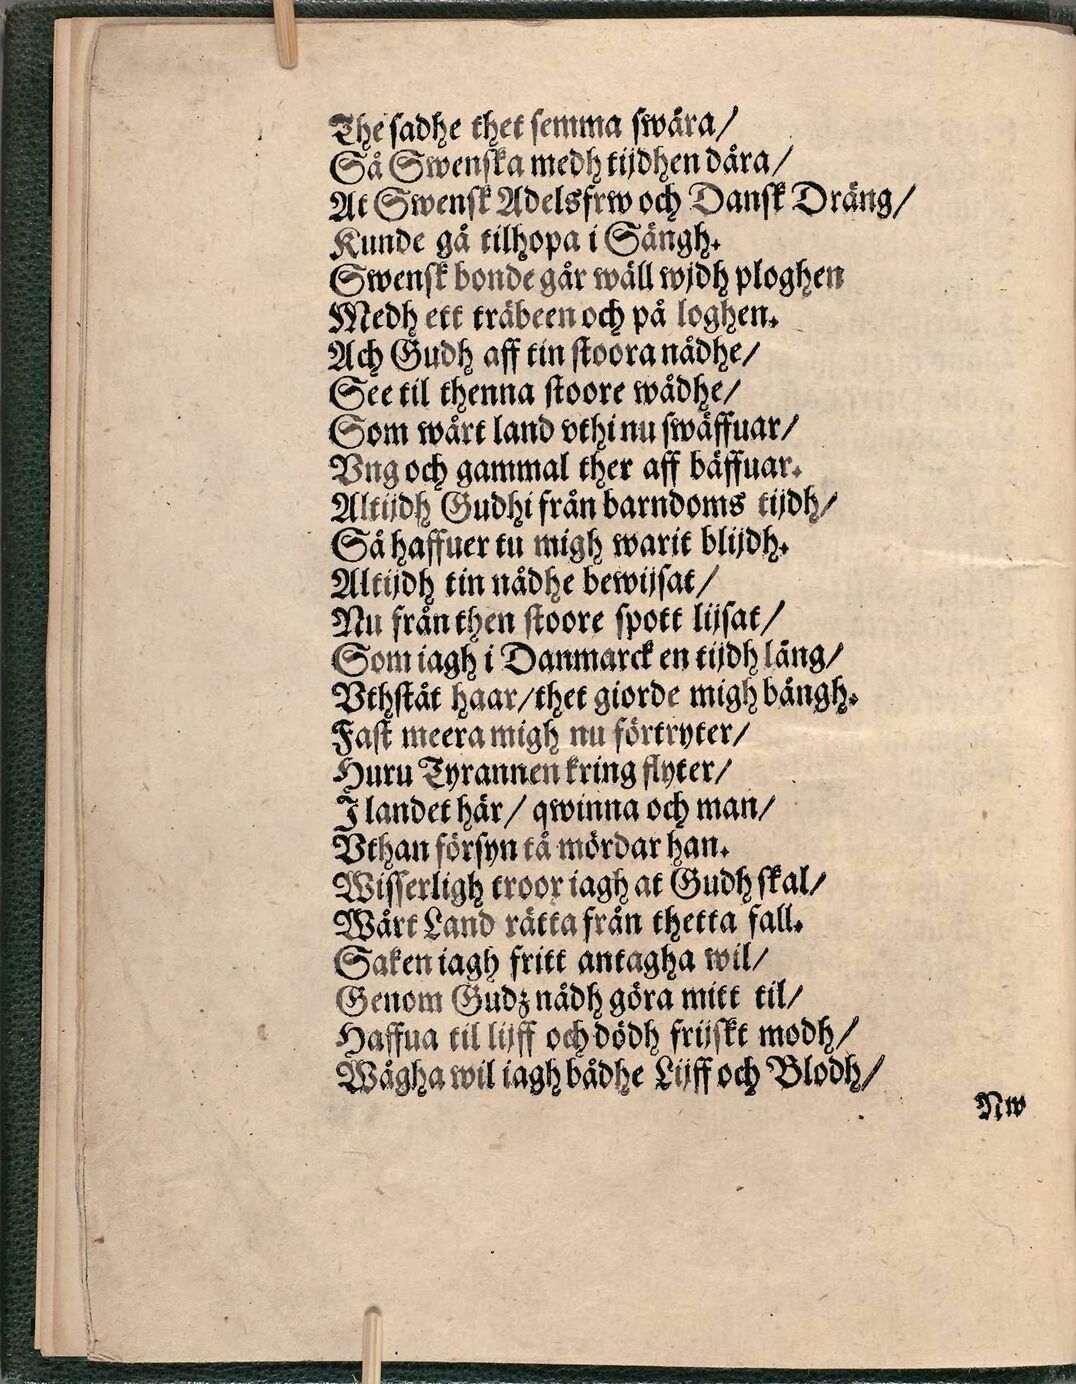 The sadhe thet semma swåra/
Så Swenska medh tijdhen dåra/
At Swensk Adelsfrw och Dansk Dräng/
Kunde gå tilhopa i Sängh.
Swensk bonde går wäll wjdh ploghen
Medh ett träbeen och på loghen.
Ach Gudh aff tin stoora nådhe/
See til thenna stoore wådhe/
Som wårt land vthi nu swäffuar/
Vng och gammal ther aff bäffuar.
Altijdh Gudhi från barndoms tijdh/
Så haffuer tu migh warit blijdh.
Altijdh tin nådhe bewijsat/
Nu från then stoore spott lijsat/
Som iagh i Danmarck en tijdh läng/
Vthståt haar/thet giorde migh bångh.
Fast meera migh nu förtryter/
Huru Tyrannen kring flyter/
I landet här/ qwinna och man/
Vthan försyn tå mördar han.
Wisserligh troor iagh at Gudh skal/
Wårt Land rätta från thetta fall.
Saken iagh fritt antagha wil/
Genom Gudz nådh göra mitt til/
Haffua til lijff och dödh frijskt modh/
Wågha wil iagh bådhe Lijff och Blodh/
Nw